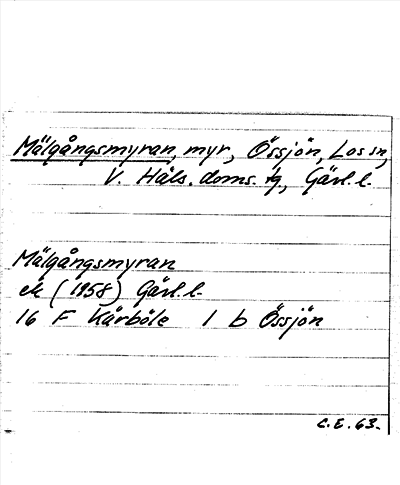 Mälgångsmyran, myr, Össjön, Los sn,
V. Häls. doms. tg, Gävl. l.
Mälgångsmyran
ek (1958) Gävl. l.
16 F Kårböle 1 b Össjön
C.E. 63.